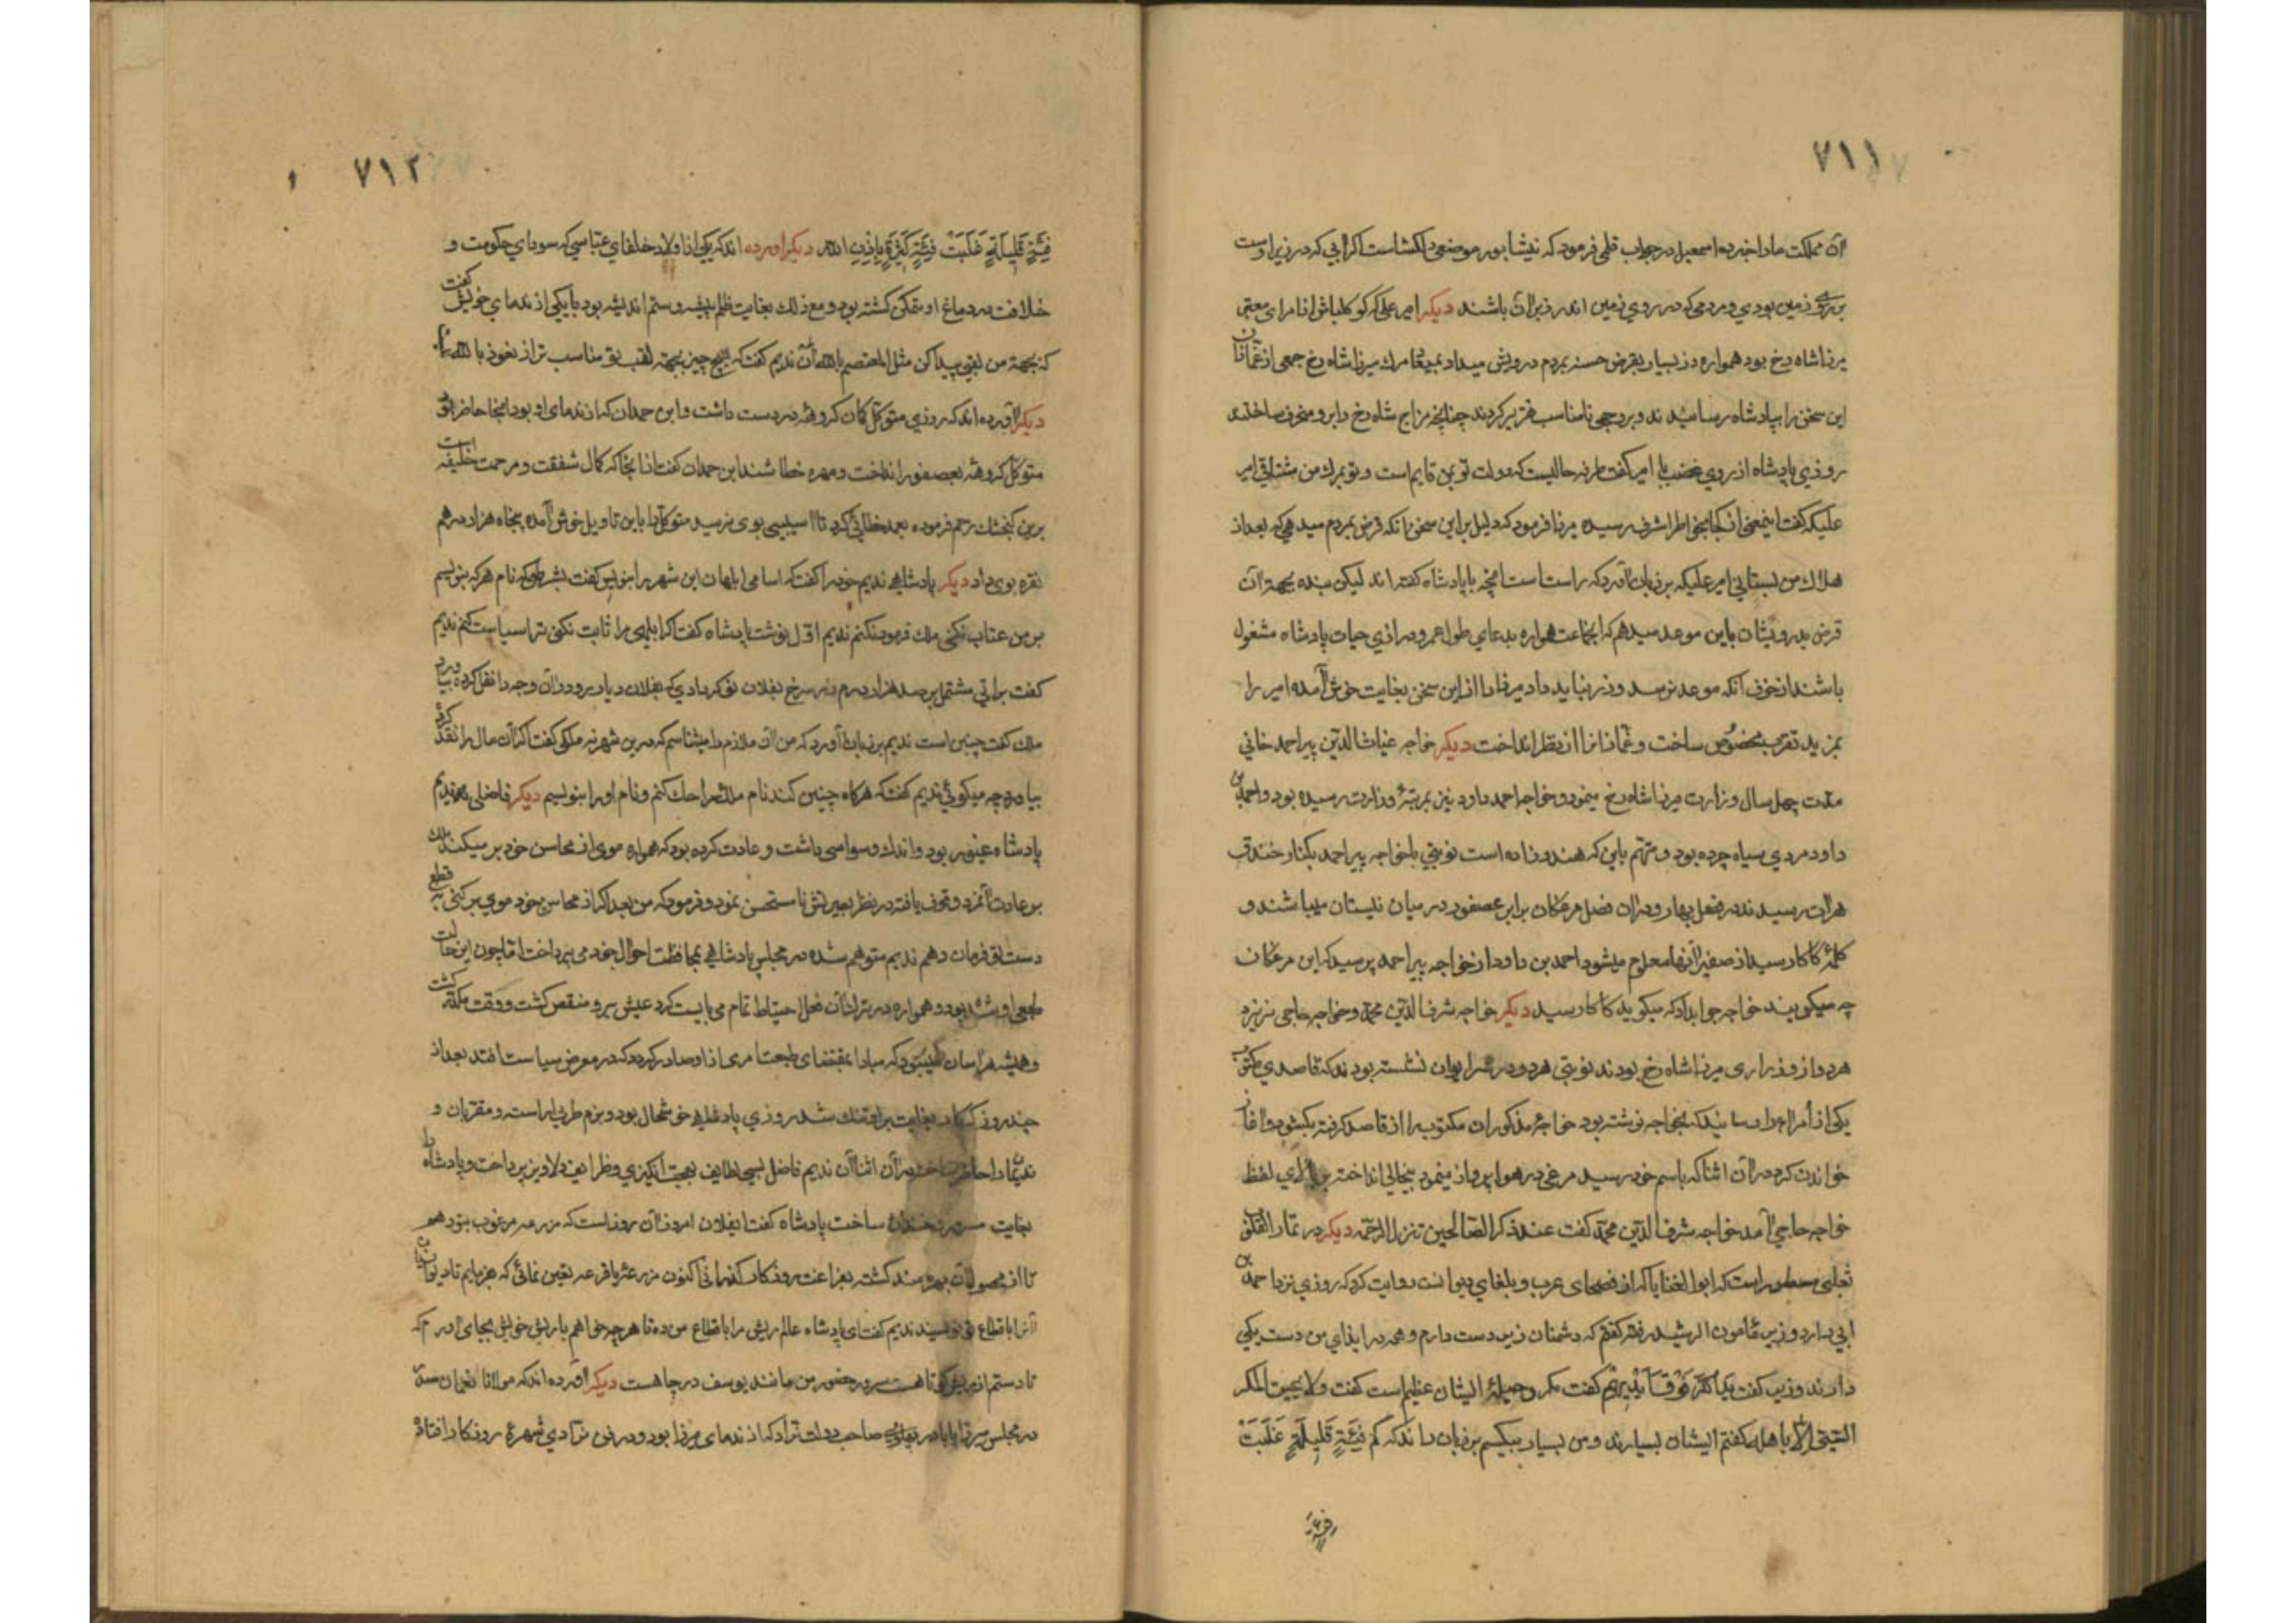 ٧١١
آن مملکت مارا خبر ده اسمعیل در جواب قلمی فرمود که نیشابور موضعی دلکشاست اگر آبی که در زیر اوست
بر روی زمین بودی و مردمی که در روی زمین اند در زیر آن باشند دیکر امیر علیکه کوکلتاش از امرای معتبر
میرزا شاه رخ بود همواره زر بسیار بقرض حسنه بمردم درویش میداد بمیعاد مرك میرزا شاه رخ جمعی از غمازان
این سخن را بپادشاه رسانیدند و بر وجهی نامناسب تقریر کردند چنانچه مزاج شاه رخ را بر و منحرف ساختند
روزی پادشاه از روی غضب با امیر گفت طرفه حالیست که دولت تو بمن قایم است و تو بمرك من مشتاقی امیر
علیکه گفت اینمعنی از کجا بخاطر اشرف رسیده میرزا فرمود که دلیل بر این سخن آنکه قرض بمردم میدهی که بعد از
هلاك من بستانی امیر علیکه بر زبان آورد که راست است آنچه با پادشاه گفته اند لیکن بنده بجهة آن
قرض بدرویشان باین موعد میدهم که آنجماعت همواره بدعای طول عمر و درازی حیات پادشاه مشغول
باشند از خوف آنکه موعد نرسد و زر نباید داد میرزا را از این سخن بغایت خوش آمده امیر را
بمزید تقرب مخصوص ساخت و غمازانرا از نظر انداخت دیکر خواجه غیاث الدین پیر احمد خافی
مدت چهل سال وزارت میرزا شاه رخ مینمود و خواجه احمد داود نیز بمرتبهٔ وزارت رسیده بود و احمد بن
داود مردی سیاه چرده بود و متهم باین که هندو زاده است نوبتی با خواجه پیر احمد بکنار خندق
هرات رسیدند در فصل بهار و در آن فصل مرغکان برابر عصفور در میان نیستان میباشند و
کلمهٔ کاکا رسید از صفیر آنها معلوم میشود احمد بن داود از خواجه پیر احمد پرسید که این مرغکان
چه میگویند خواجه جواب داد که میگوید کاکا رسید دیکر خواجه شرف الدین محمد و خواجه حاجی
هر دو از وزرای میرزا شاه رخ بودند نوبتی هر دو در ایوان نشسته بودند که قاصدی مکتوب
یکی از امرا را رسانید که بخواجه نوشته بود خواجهٔ مذکور آن مکتوب را از قاصد گرفته بگشود و آغاز
خواندن کرد در آن اثنا که باسم خود رسید مرغی در هوا پرواز مینمود پیخالی انداخته بر بالای لفظ
خواجه حاجی آمد خواجه شرف الدین محمد گفت عند ذکر الصالحین تنزل الرحمه دیکر در ثمار القلوب
ثعلبی مسطور است که ابوالعینا که از فصحای عرب و بلغای دیوانست روایت کرد که روزی نزد احمد بن
ابی دارد وزیر مامون الرشید رفتم گفتم که دشمنان زبر دست دارم و همه در ایذای من دست یکی
دارند وزیر گفت یَدُ اللّٰه فَوْقَ اَیْدِیهِم گفت مکر و حیلهٔ ایشان عظیم است گفت ولا یحیق المکر
السّیّئ الّا باهله گفتم ایشان بسیارند و من بسیار بیکسم بر زبان راند که کَم فِئَةٍ قَلِیلَةٍ غَلَبَتْ
٧١٢
فِئَةٍ قَلِیلَةٍ غَلَبَتْ فِئَةً کَثِیرَةً بِاِذنِ اللّٰه دیکر آورده اند که یکی از اولاد خلفای عباسی که سودای حکومت و
خلافت در دماغ او متمکن گشته بود و مع ذلك بغایت ظلم پیشه و ستم اندیشه بود با یکی از ندمای خویش گفت
که بجهة من لقبی پیدا کن مثل المعتصم بالله آن ندیم گفت که هیچ چیز بجهة لقب تو مناسب تر از نعوذ بالله
دیکر آورده اند که روزی متوکل کمان کروهه در دست داشت و ابن حمدان که از ندمای او بود آنجا حاضر بود
متوکل کروهه بعصفور انداخت و مهره خطا شد ابن حمدان گفت از آنجا که کمال شفقت و مرحمت خلیفه است
برین کنجشك رحم فرموده بعمد خطائی کرد تا آسیبی بوی نرسید متوکل را باین تاویل خوش آمده پنجاه هزار درهم
نقره بوی داد دیکر پادشاهی ندیم خود را گفت که اسامی ابلهان این شهر را بنویس گفت بشرطیکه نام هر که بنویسم
بر من عتاب نکنی ملك فرمود نکنم ندیم اول نام پادشاه نوشت پادشاه گفت اگر ابلهی مرا ثابت نکنی ترا سیاست کنم ندیم
گفت براتی مشتمل بر صد هزار درم زر سرخ بفلان نوکر دادی که بفلان دیار رود و آن وجه را نقل کرده بیاورد
ملك گفت چنین است ندیم بر زبان آورد که من آن ملازم را میشناسم که درین شهر نه ملکی گفت اگر آن مال را نقد کرد
بیاورد چه میگوئی ندیم گفت که هرگاه چنین کند نام ملك را حك کنم و نام او را بنویسم دیکر فاضلی ندیم
پادشاه غیور بود و اندك وسواسی داشت و عادت کرده بود که همواره موی از محاسن خود بر میکند ملك
بر عادت آنمرد وقوف یافته در نظر بصیرتش نامستحسن نمود و فرمود که من بعد اگر از محاسن خود موی بر کنی به قطع
دست تو فرمان دهم ندیم متوهم شده در مجلس پادشاهی بمحافظت احوال خود می پرداخت اما چون این حالت
طبعی او شده بود و همواره در ترك آن فعل احتیاط تمام می بایست کرد عیش برو منغص گشت و وقت مکدر گشت
و همیشه هراسان میبود که مبادا بمقتضای طبیعت امری از او صادر گردد که در معرض سیاست افتد بعد از
چند روز که کار بغایت بر او تنك شد روزی پادشاهی خوشحال بود و بزم طربی آراسته و مقربان و
ندیمان را حاضر ساخت در آن اثنا آن ندیم فاضل بسی لطایف بهجت انگیزی و ظرایف دلاویز پرداخت و پادشاه را
بغایت مسرور و خندان ساخت پادشاه گفت ایفلان امروز آن روز است که مزرعه مرغوب بتو دهم
تا از محصولات آن بهره مند گشته بفراغت روزگار گذرانی اکنون مزرعه یا قرعه تعین نمائی که فرمایم تا دیوانیان
آنرا باقطاع تو نویسند ندیم گفت ای پادشاه عالم ریش مرا باقطاع من ده تا هر چه خواهم با ریش خویش بجای آورم که
تا دستم از ریش کوتاهست سرور حضور من مانند یوسف در چاهست دیکر آورده اند که مولانا
در مجلس میرزا بابر بهادر صاحب دولت نژاد که از ندمای میرزا بود و در فن نرادی شهرهٔ روزگار افتاده